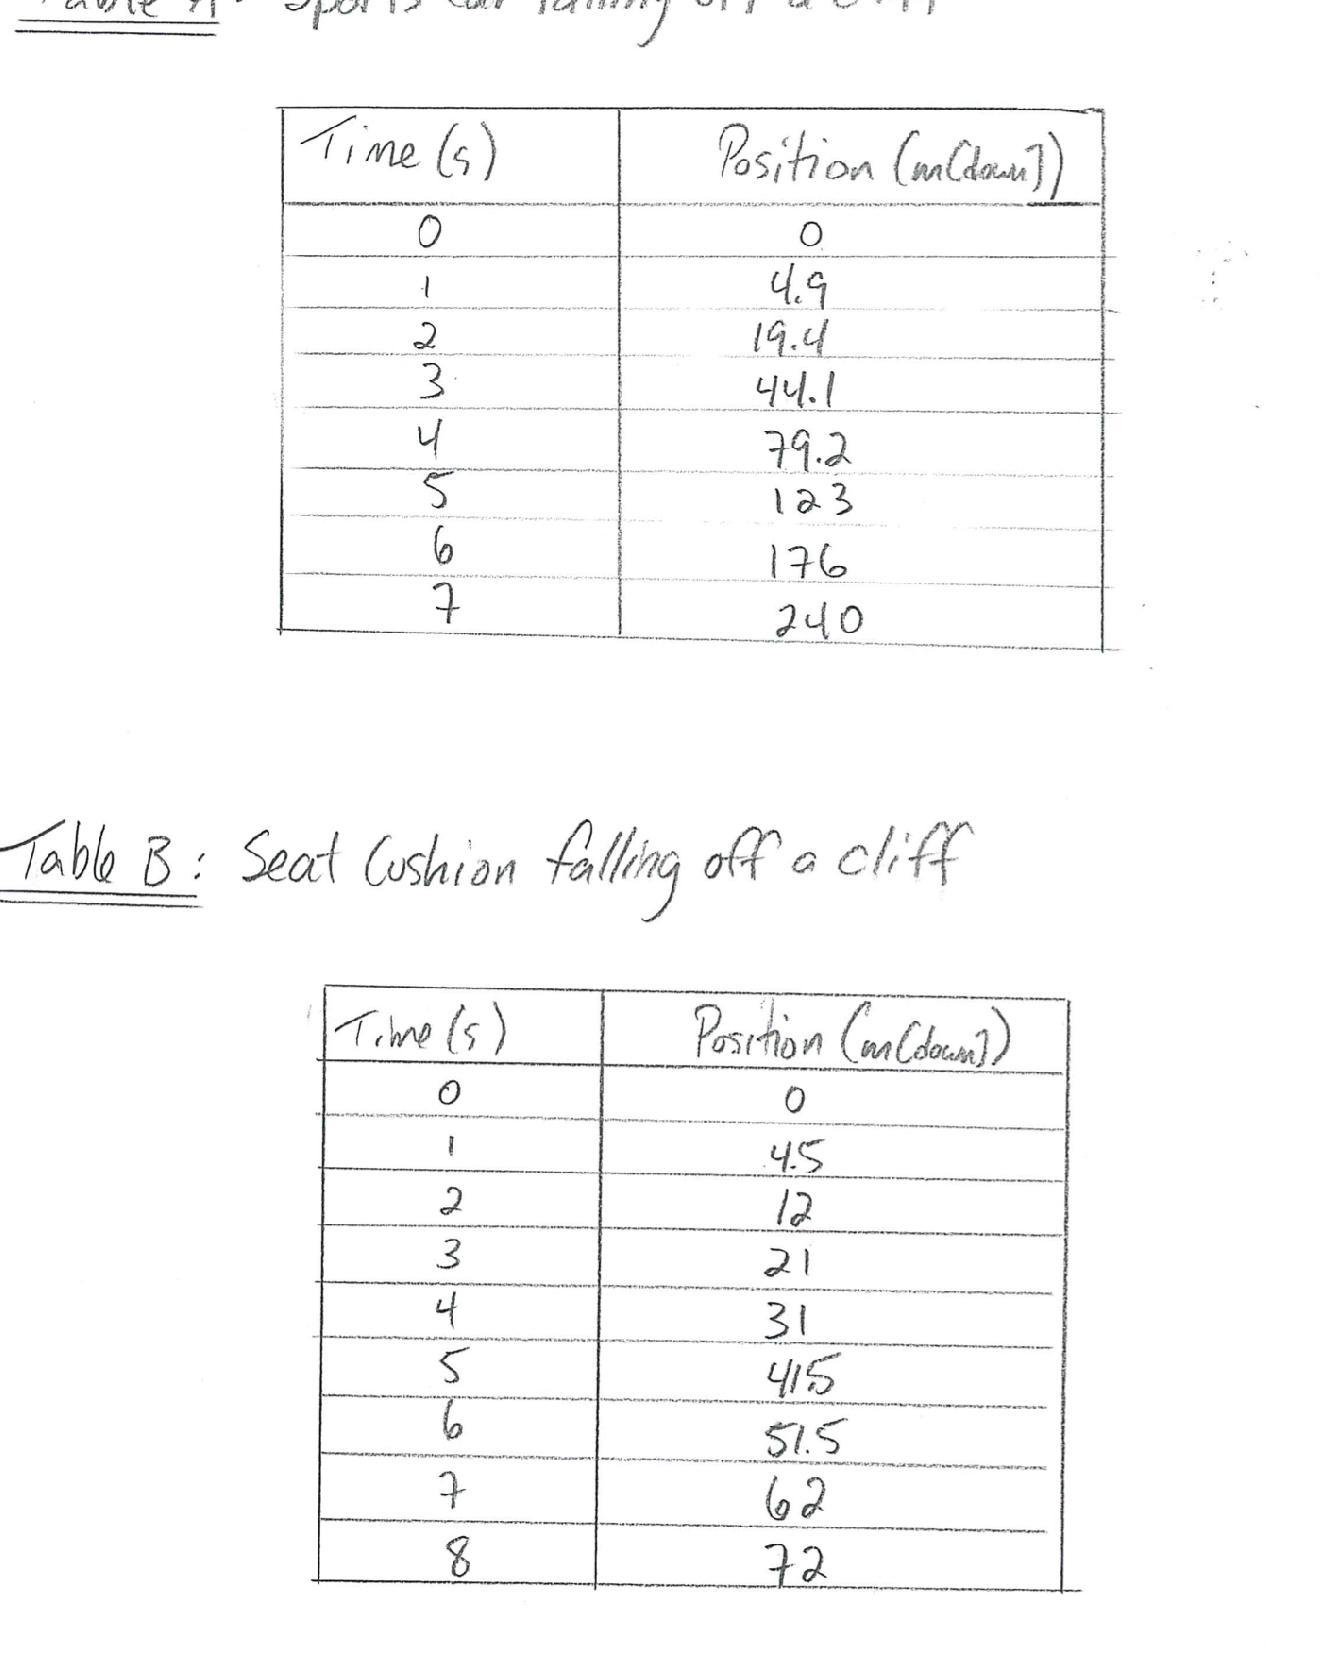 Table A: Sports car falling off a cliff
Time (s) Position (m[down])
0 0
1 4.9
2 19.4
3 44.1
4 79.2
5 123
6 176
7 240
Table B: Seat Cushion falling off a cliff
Time (s) Position (m[down])
0 0
1 4.5
2 12
3 21
4 31
5 41.5
6 51.5
7 62
8 72